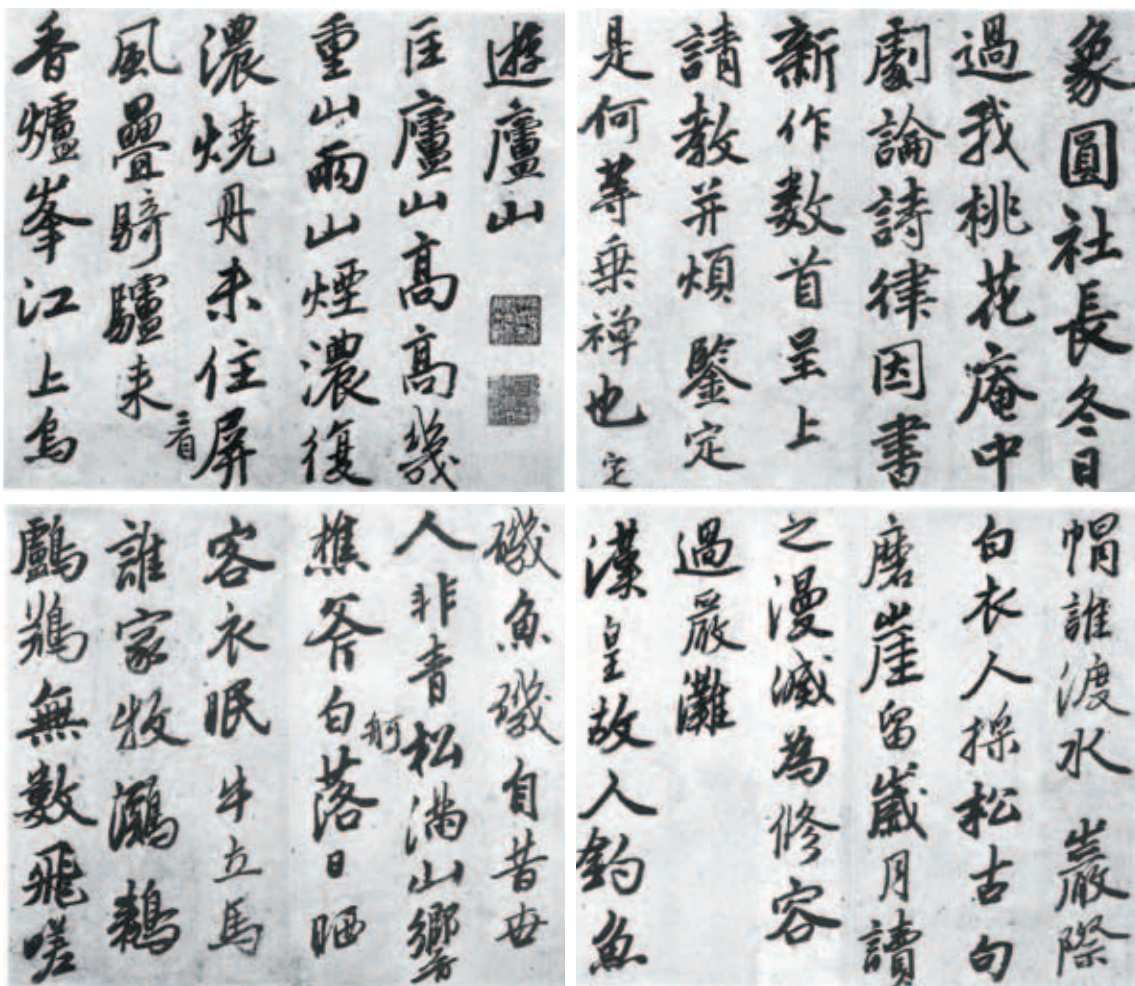 象圓社長冬日
過我桃花庵中
劇論詩律因書
新作数首呈上
請教并煩鑒定
是何等乗禅也
定
遊廬山
匡廬山高高幾
重山雨山煙濃復
濃燒丹未住屏
風疊騎驢来
看
香爐峯江上烏
帽誰渡水巖際
白衣人採松古句
磨崖留嵗月讀
之漫滅為修容
過嚴灘
漢皇故人釣魚
磯魚磯自昔世
人非青松满山響
樵斧白落日晒
舸
客衣眠牛立馬
誰家牧鸂鶒
鸕鷀無數飛嗟